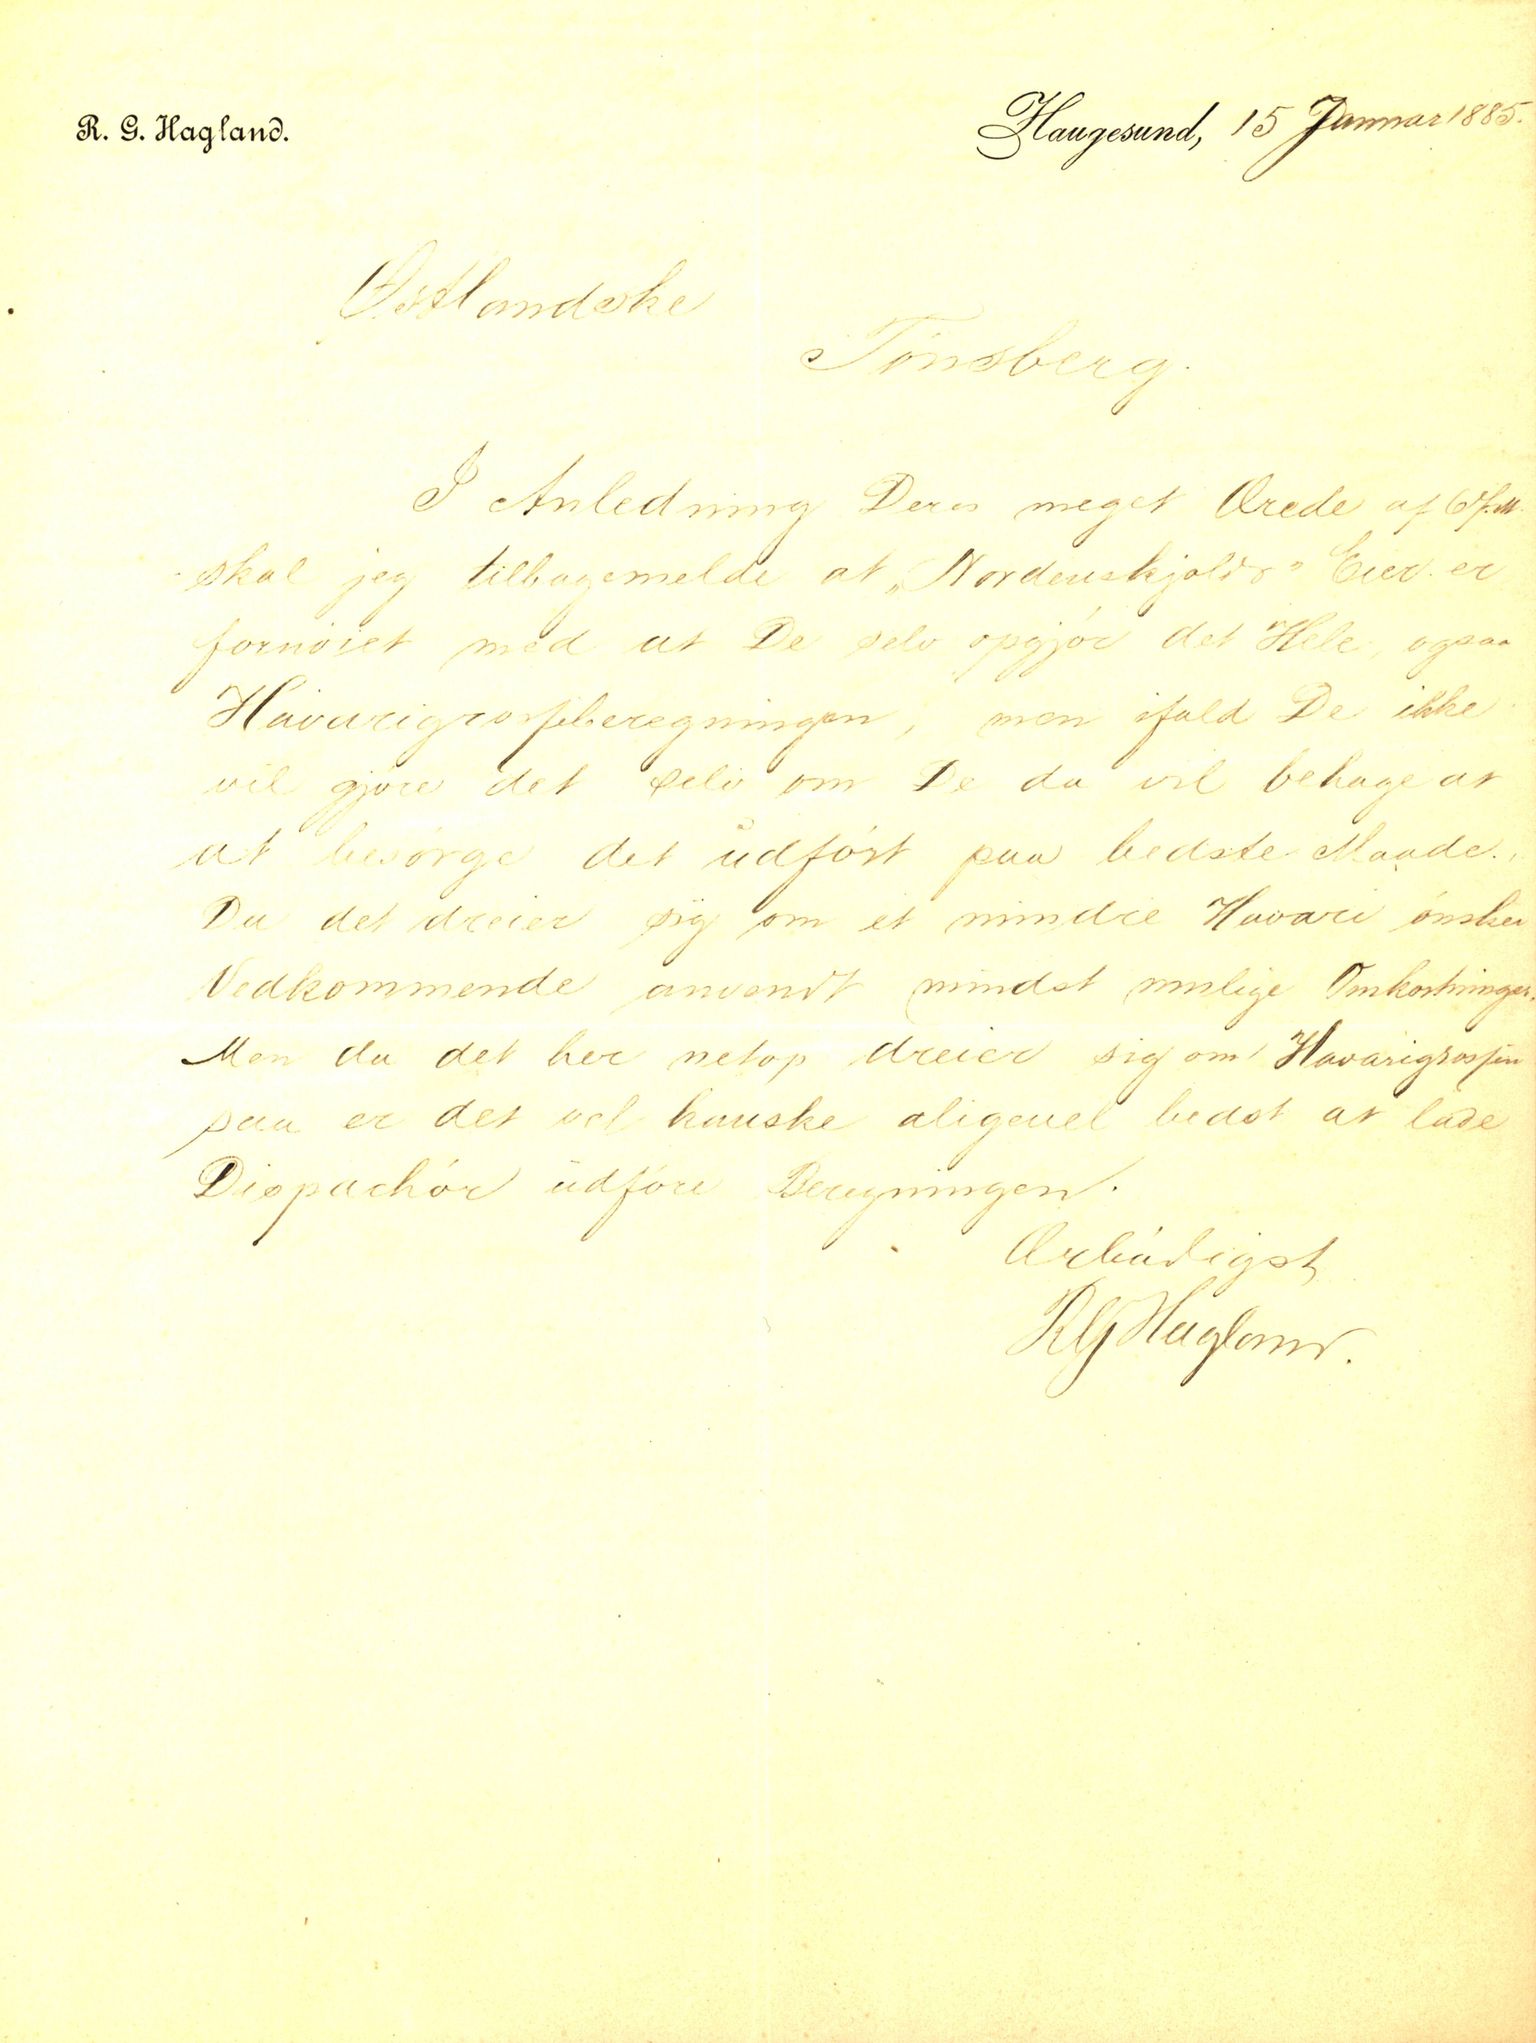 R. G. Hagland.
Haugesund, 15 Januar 1885.
Østlandske
Tønsberg.
I Anledning Deres meget Ærede af
skal jeg tilbagemelde at „Nordenskjolds" Eier er
fornøiet med at De selv opgjør det Hele, ogsaa
Havarigrosseberegningen, men ifald De ikke
vil gjøre det selv om De da vil behage at
at besørge det udført paa bedste Maade.
Da det dreier sig om et mindre Havari ønsker
Vedkommende anvendt mindst mulige Omkostninger.
Men da det her netop dreier sig om Havarigrossen
saa er det vel kanske aligevel bedst at lade
Dispachør udføre Beregningen.
Ærbødigst
RG Hagland.